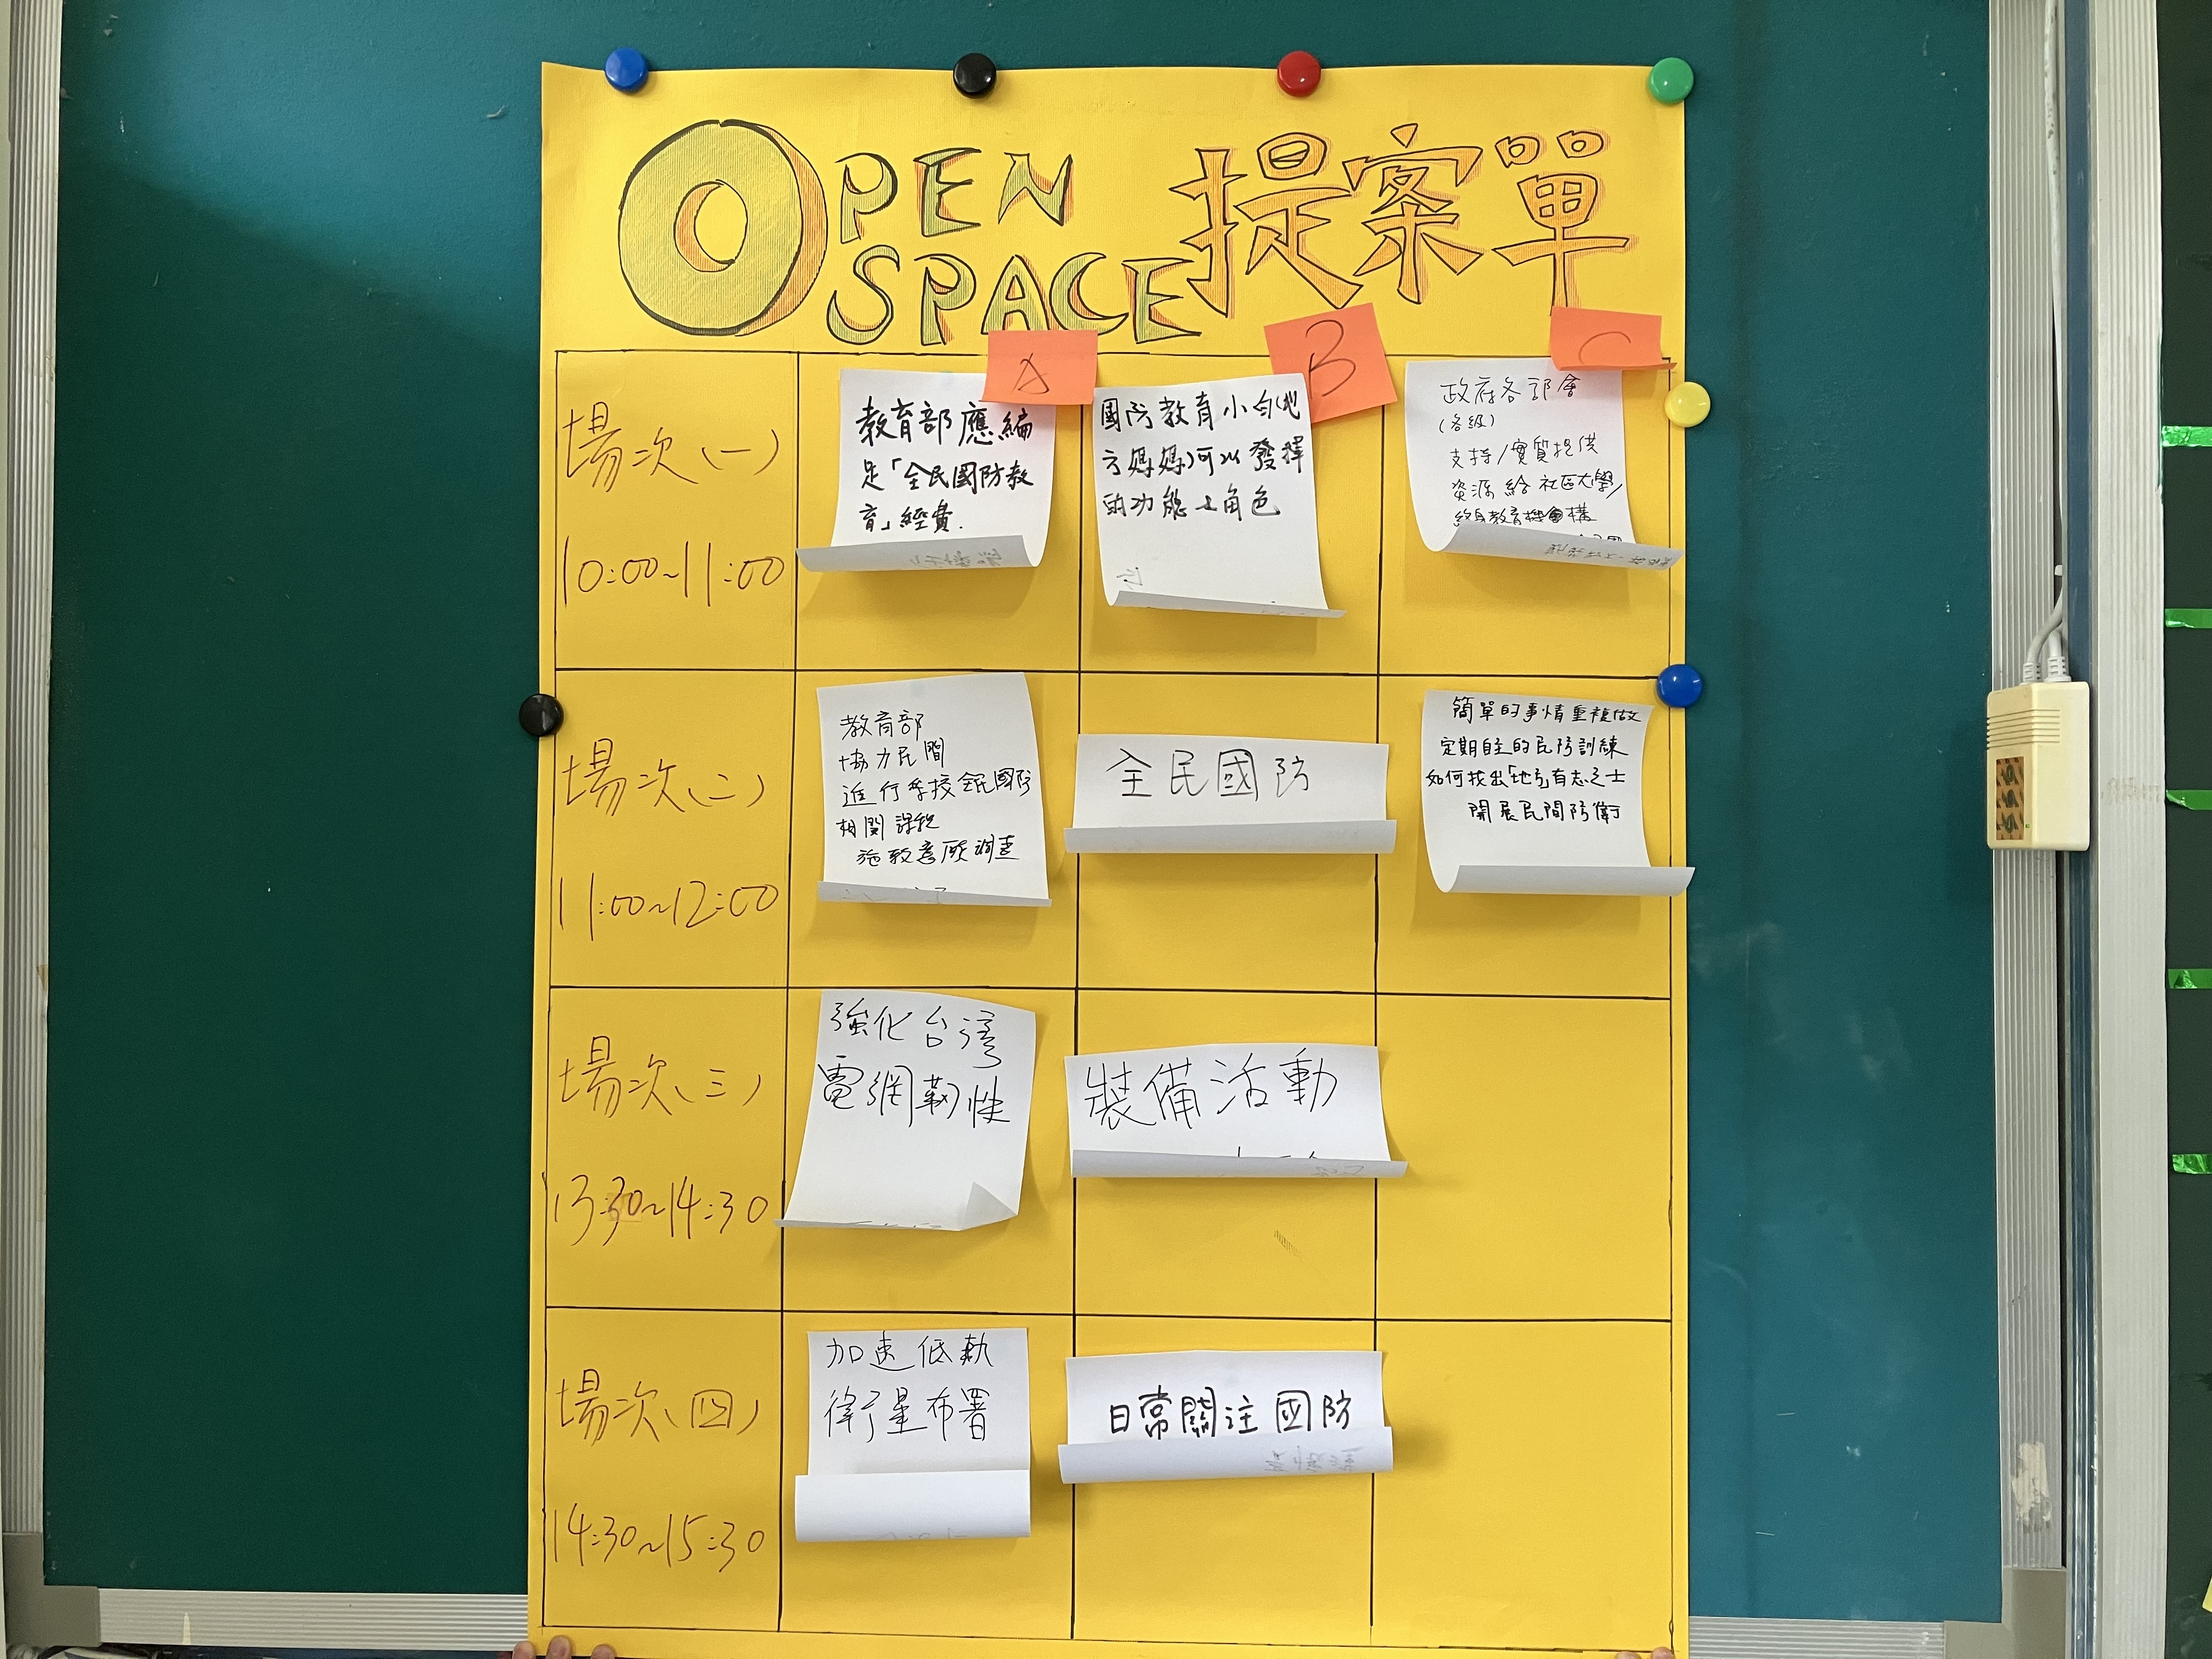 OPEN
SPACE
提案單
A
B
C
場次(一)
10:00~11:00
教育部應編
足「全民國防教
育」經費.
國防教育小白(地
方媽媽)可以發揮
的功能與角色
政府各部會
(各級)
支持/實質提供
資源給社區大學/
終身教育機構
場次(二)
11:00~12:00
教育部
協力民間
進行學校全民國防
相關課程
施教意願調查
全民國防
簡單的事情重複做
定期自主的民防訓練
如何找出「地方」有志之士
開展民間防衛
場次(三)
13:30~14:30
強化台灣
電網韌性
裝備活動
場次(四)
14:30~15:30
加速低軌
衛星布署
日常關注國防